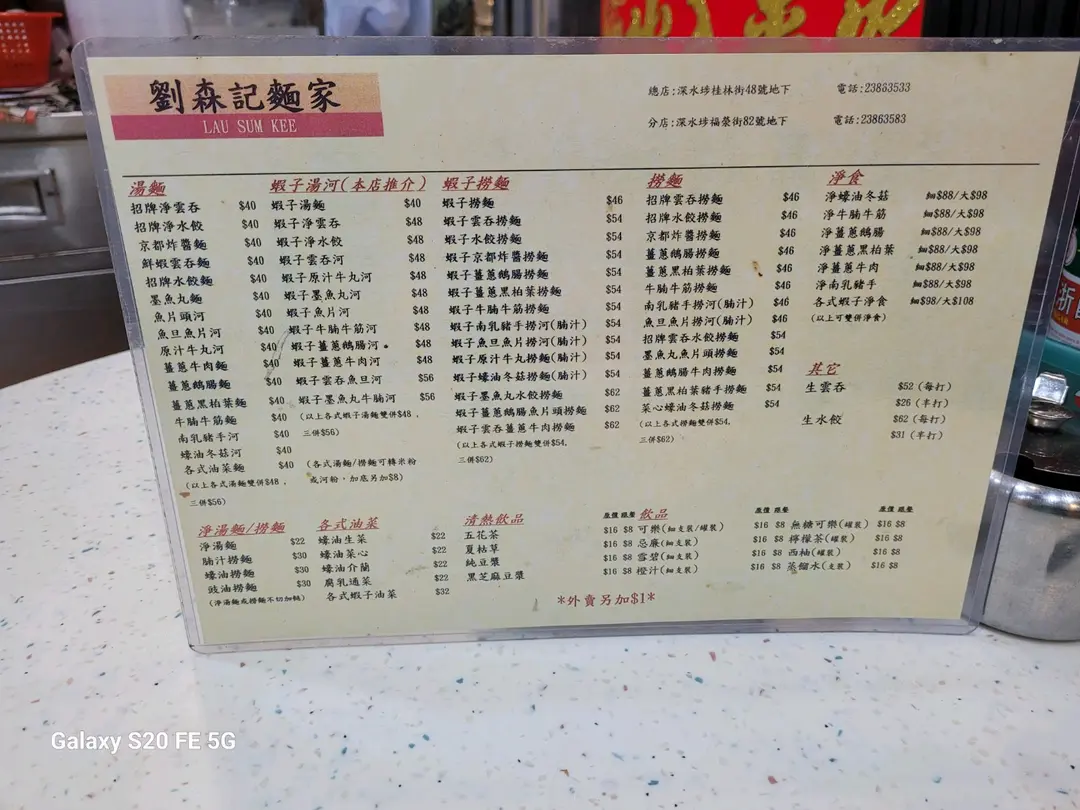 劉森記麵家
LAU SUM KEE
總店:深水埗桂林街48號地下 電話:23863533
分店:深水埗福榮街82號地下 電話:23863583
湯麵
招牌淨雲吞 $40
招牌淨水餃 $40
京都炸醬麵 $40
鮮蝦雲吞麵 $40
招牌水餃麵 $40
墨魚丸麵 $40
魚片頭河 $40
魚旦魚片河 $40
原汁牛丸河 $40
薑蔥牛肉麵 $40
薑蔥鵝腸麵 $40
薑蔥黑柏葉麵 $40
牛腩牛筋麵 $40
南乳豬手河 $40
蠔油冬菇河 $40
各式油菜麵 $40
(以上各式湯麵雙併$48,
三併$56)
蝦子湯河(本店推介)
蝦子湯麵 $40
蝦子淨雲吞 $48
蝦子淨水餃 $48
蝦子雲吞河 $48
蝦子原汁牛丸河 $48
蝦子墨魚丸河 $48
蝦子魚片河 $48
蝦子牛腩牛筋河 $48
蝦子薑蔥鵝腸河 $48
蝦子薑蔥牛肉河 $48
蝦子雲吞魚旦河 $56
蝦子墨魚丸牛腩河 $56
(以上各式蝦子湯麵雙併$48,
三併$56)
(各式湯麵/撈麵可轉米粉
或河粉,加底另加$8)
蝦子撈麵
蝦子撈麵 $46
蝦子雲吞撈麵 $54
蝦子水餃撈麵 $54
蝦子京都炸醬撈麵 $54
蝦子薑蔥鵝腸撈麵 $54
蝦子薑蔥黑柏葉撈麵 $54
蝦子牛腩牛筋撈麵 $54
蝦子南乳豬手撈河(腩汁) $54
蝦子魚旦魚片撈河(腩汁) $54
蝦子原汁牛丸撈麵(腩汁) $54
蝦子蠔油冬菇撈麵(腩汁) $54
蝦子墨魚丸水餃撈麵 $62
蝦子薑蔥鵝腸魚片頭撈麵 $62
蝦子雲吞薑蔥牛肉撈麵 $62
(以上各式蝦子撈麵雙併$54,
三併$62)
撈麵
招牌雲吞撈麵 $46
招牌水餃撈麵 $46
京都炸醬撈麵 $46
薑蔥鵝腸撈麵 $46
薑蔥黑柏葉撈麵 $46
牛腩牛筋撈麵 $46
南乳豬手撈河(腩汁) $46
魚旦魚片撈河(腩汁) $46
招牌雲吞水餃撈麵 $54
墨魚丸魚片頭撈麵 $54
薑蔥鵝腸牛肉撈麵 $54
薑蔥黑柏葉豬手撈麵 $54
菜心蠔油冬菇撈麵 $54
(以上各式撈麵雙併$54,
三併$62)
淨食
淨蠔油冬菇 細$88/大$98
淨牛腩牛筋 細$88/大$98
淨薑蔥鵝腸 細$88/大$98
淨薑蔥黑柏葉 細$88/大$98
淨薑蔥牛肉 細$88/大$98
淨南乳豬手 細$88/大$98
各式蝦子淨食 細$98/大$108
(以上可雙併淨食)
其它
生雲吞 $52 (每打)
$26 (半打)
生水餃 $62 (每打)
$31 (半打)
淨湯麵/撈麵
淨湯麵 $22
腩汁撈麵 $30
蠔油撈麵 $30
豉油撈麵 $30
(淨湯麵或撈麵不切加餸)
各式油菜
蠔油生菜 $22
蠔油菜心 $22
蠔油介蘭 $22
腐乳通菜 $22
各式蝦子油菜 $32
清熱飲品 原價 跟餐
五花茶 $16 $8
夏枯草 $16 $8
純豆漿 $16 $8
黑芝麻豆漿 $16 $8
飲品 原價 跟餐 原價 跟餐
可樂(細支裝/罐裝) $16 $8 無糖可樂(罐裝) $16 $8
忌廉(細支裝) $16 $8 檸檬茶(罐裝) $16 $8
雪碧(細支裝) $16 $8 西柚(罐裝) $16 $8
橙汁(細支裝) $16 $8 蒸餾水(支裝) $16 $8
*外賣另加$1*
浙
Galaxy S20 FE 5G